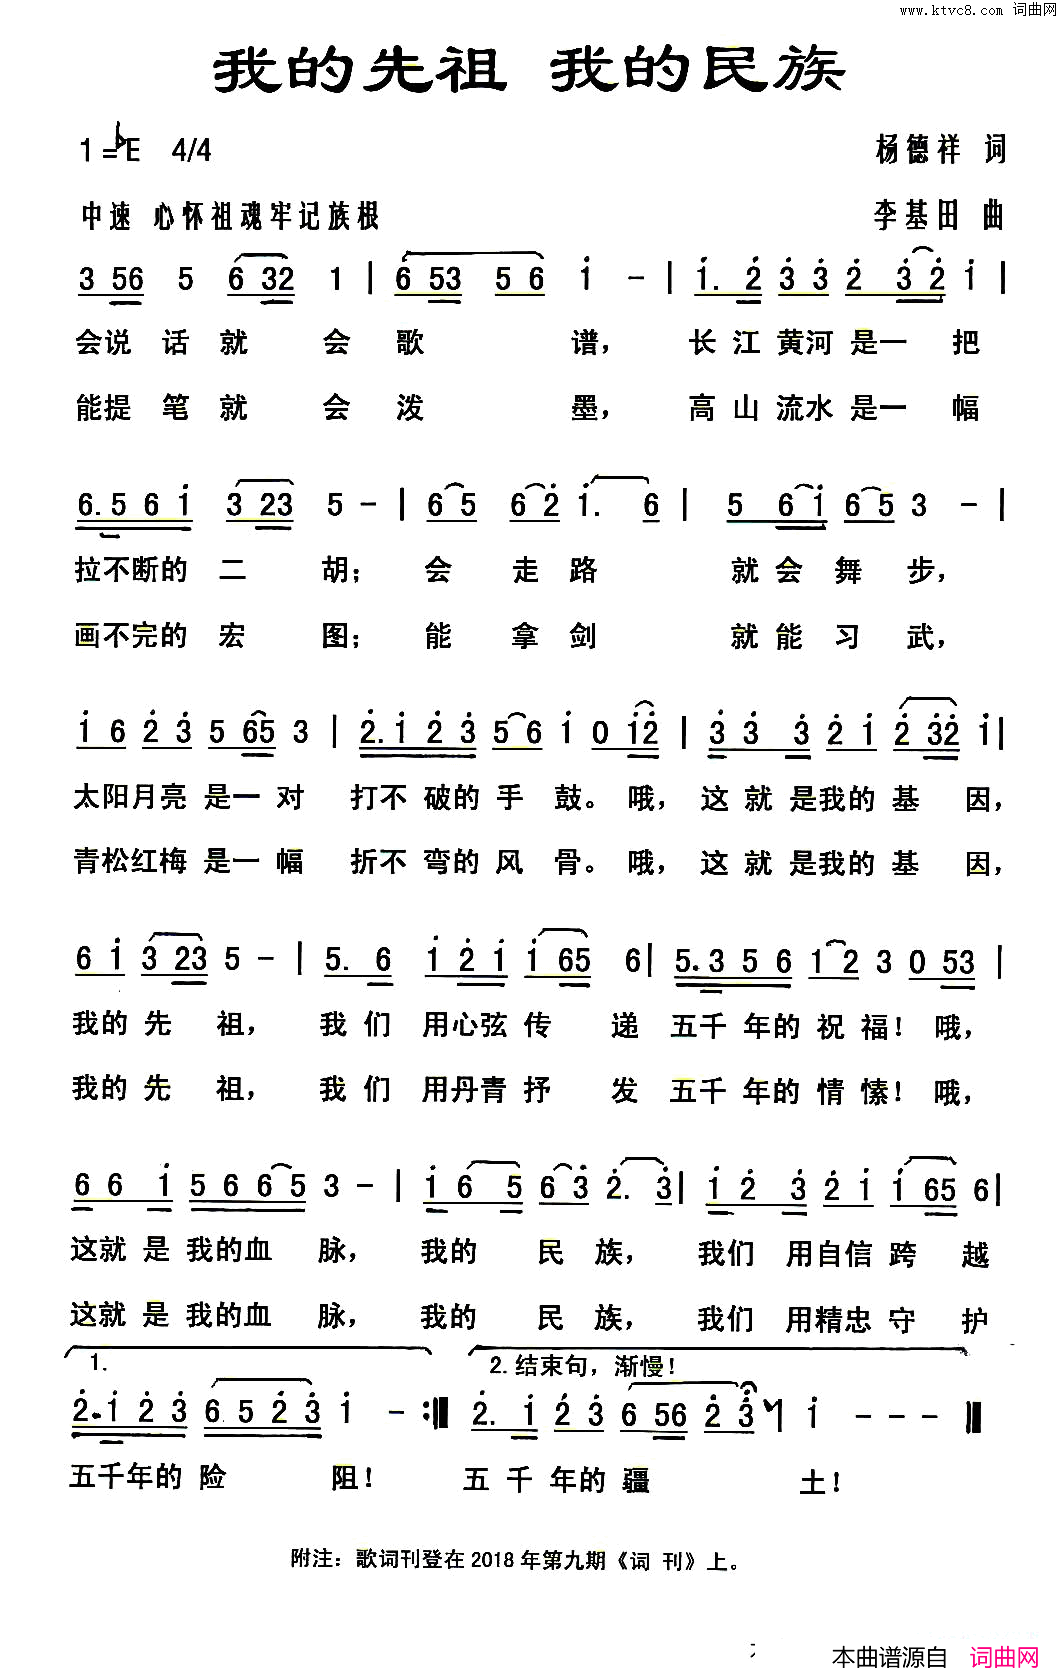 www.ktvc8.com 词曲网
我的先祖 我的民族
1=♭E 4/4 杨德祥 词
中速 心怀祖魂牢记族根 李基田 曲
3 56 5 6 32 1 | 6 53 5 6 i - | i. 2 3 3 2 3 2 i |
会说 话 就 会 歌 谱， 长 江 黄河 是一 把
能提 笔 就 会 泼 墨， 高 山 流水 是一 幅
6.5 6 i 3 23 5 - | 6 5 6 2 i. 6 | 5 6 i 6 5 3 - |
拉不断的 二 胡； 会 走 路 就 会 舞 步，
画不完的 宏 图； 能 拿 剑 就 能 习 武，
i 6 2 3 5 65 3 | 2.i 2 3 5 6 i 0 i2 | 3 3 3 2 i 2 32 i |
太阳月亮 是一 对 打不 破的 手 鼓。 哦， 这 就 是我的 基 因，
青松红梅 是一 幅 折不 弯的 风 骨。 哦， 这 就 是我的 基 因，
6 i 3 23 5 - | 5. 6 i 2 i i 65 6 | 5.3 5 6 1 2 3 0 53 |
我的 先 祖， 我 们 用心弦 传 递 五千 年的 祝 福！ 哦，
我的 先 祖， 我 们 用丹青 抒 发 五千 年的 情 愫！ 哦，
6 6 i 5 6 6 5 3 - | i 6 5 6 3 2. 3 | i 2 3 2 i i 65 6 |
这就 是 我的血 脉， 我的 民 族， 我们 用自信 跨 越
这就 是 我的血 脉， 我的 民 族， 我们 用精忠 守 护
1. 2.结束句，渐慢！
2.i 2 3 6 5 2 3 i - :‖ 2. i 2 3 6 56 2 3 i - - - ‖
五千年的 险 阻！ 五 千 年的 疆 土！
附注：歌词刊登在2018年第九期《词 刊》上。
本曲谱源自 词曲网